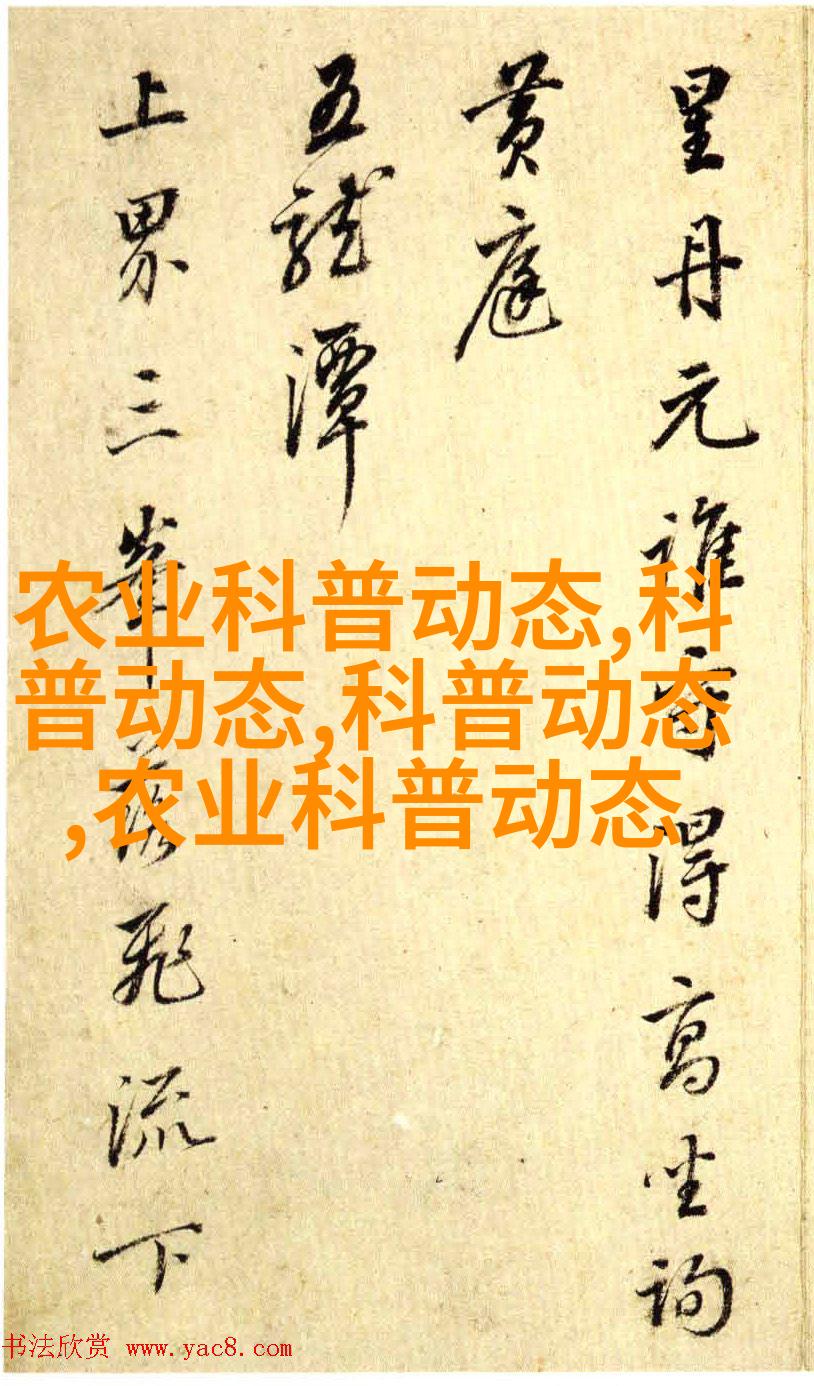 星丹元誰得高坐詢
黄庭
五龍潭
上界三峯落飛流下
农业科普动态,科
普动态,科普动态
,农业科普动态
书法欣赏 www.yac8.com